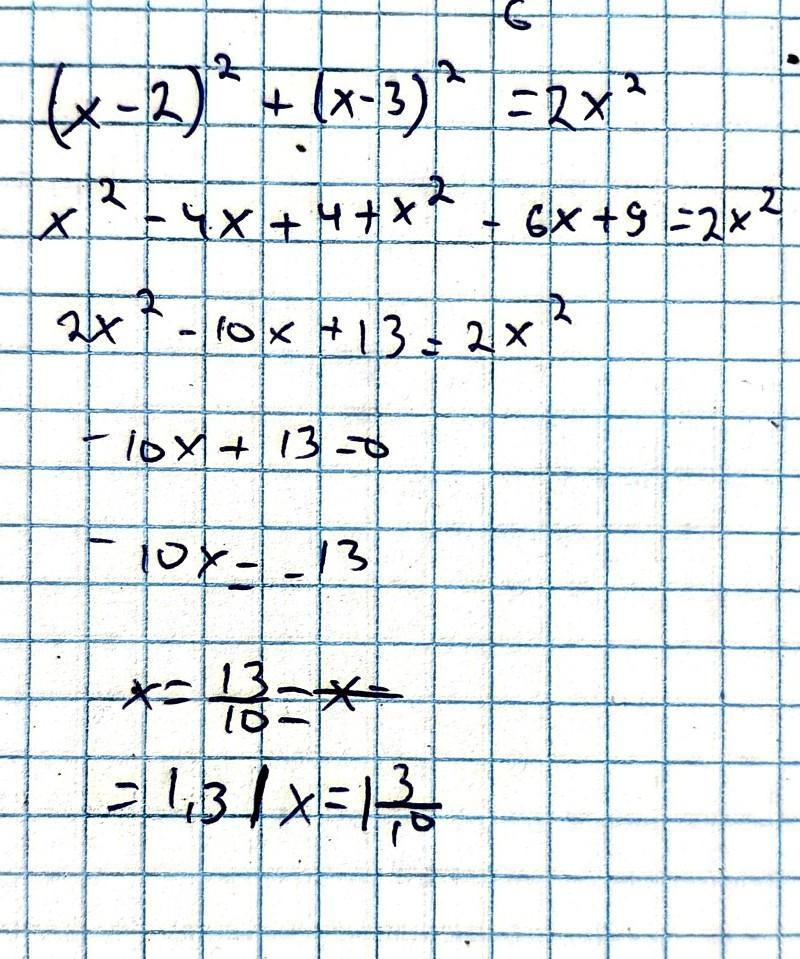 6
(x-2)² + (x-3)² = 2x²
x² - 4x + 4 + x² - 6x + 9 = 2x²
2x² - 10x + 13 = 2x²
-10x + 13 = 0
-10x = -13
x = 13/10 = x =
= 1,3 / x = 1 3/10